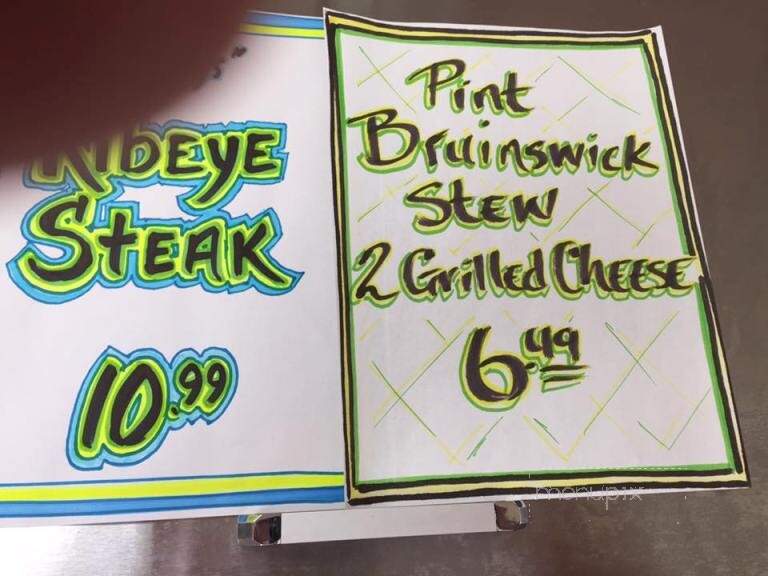 Ribeye
Steak
10.99
Pint
Bruinswick
Stew
2 Grilled Cheese
6.49
menupix